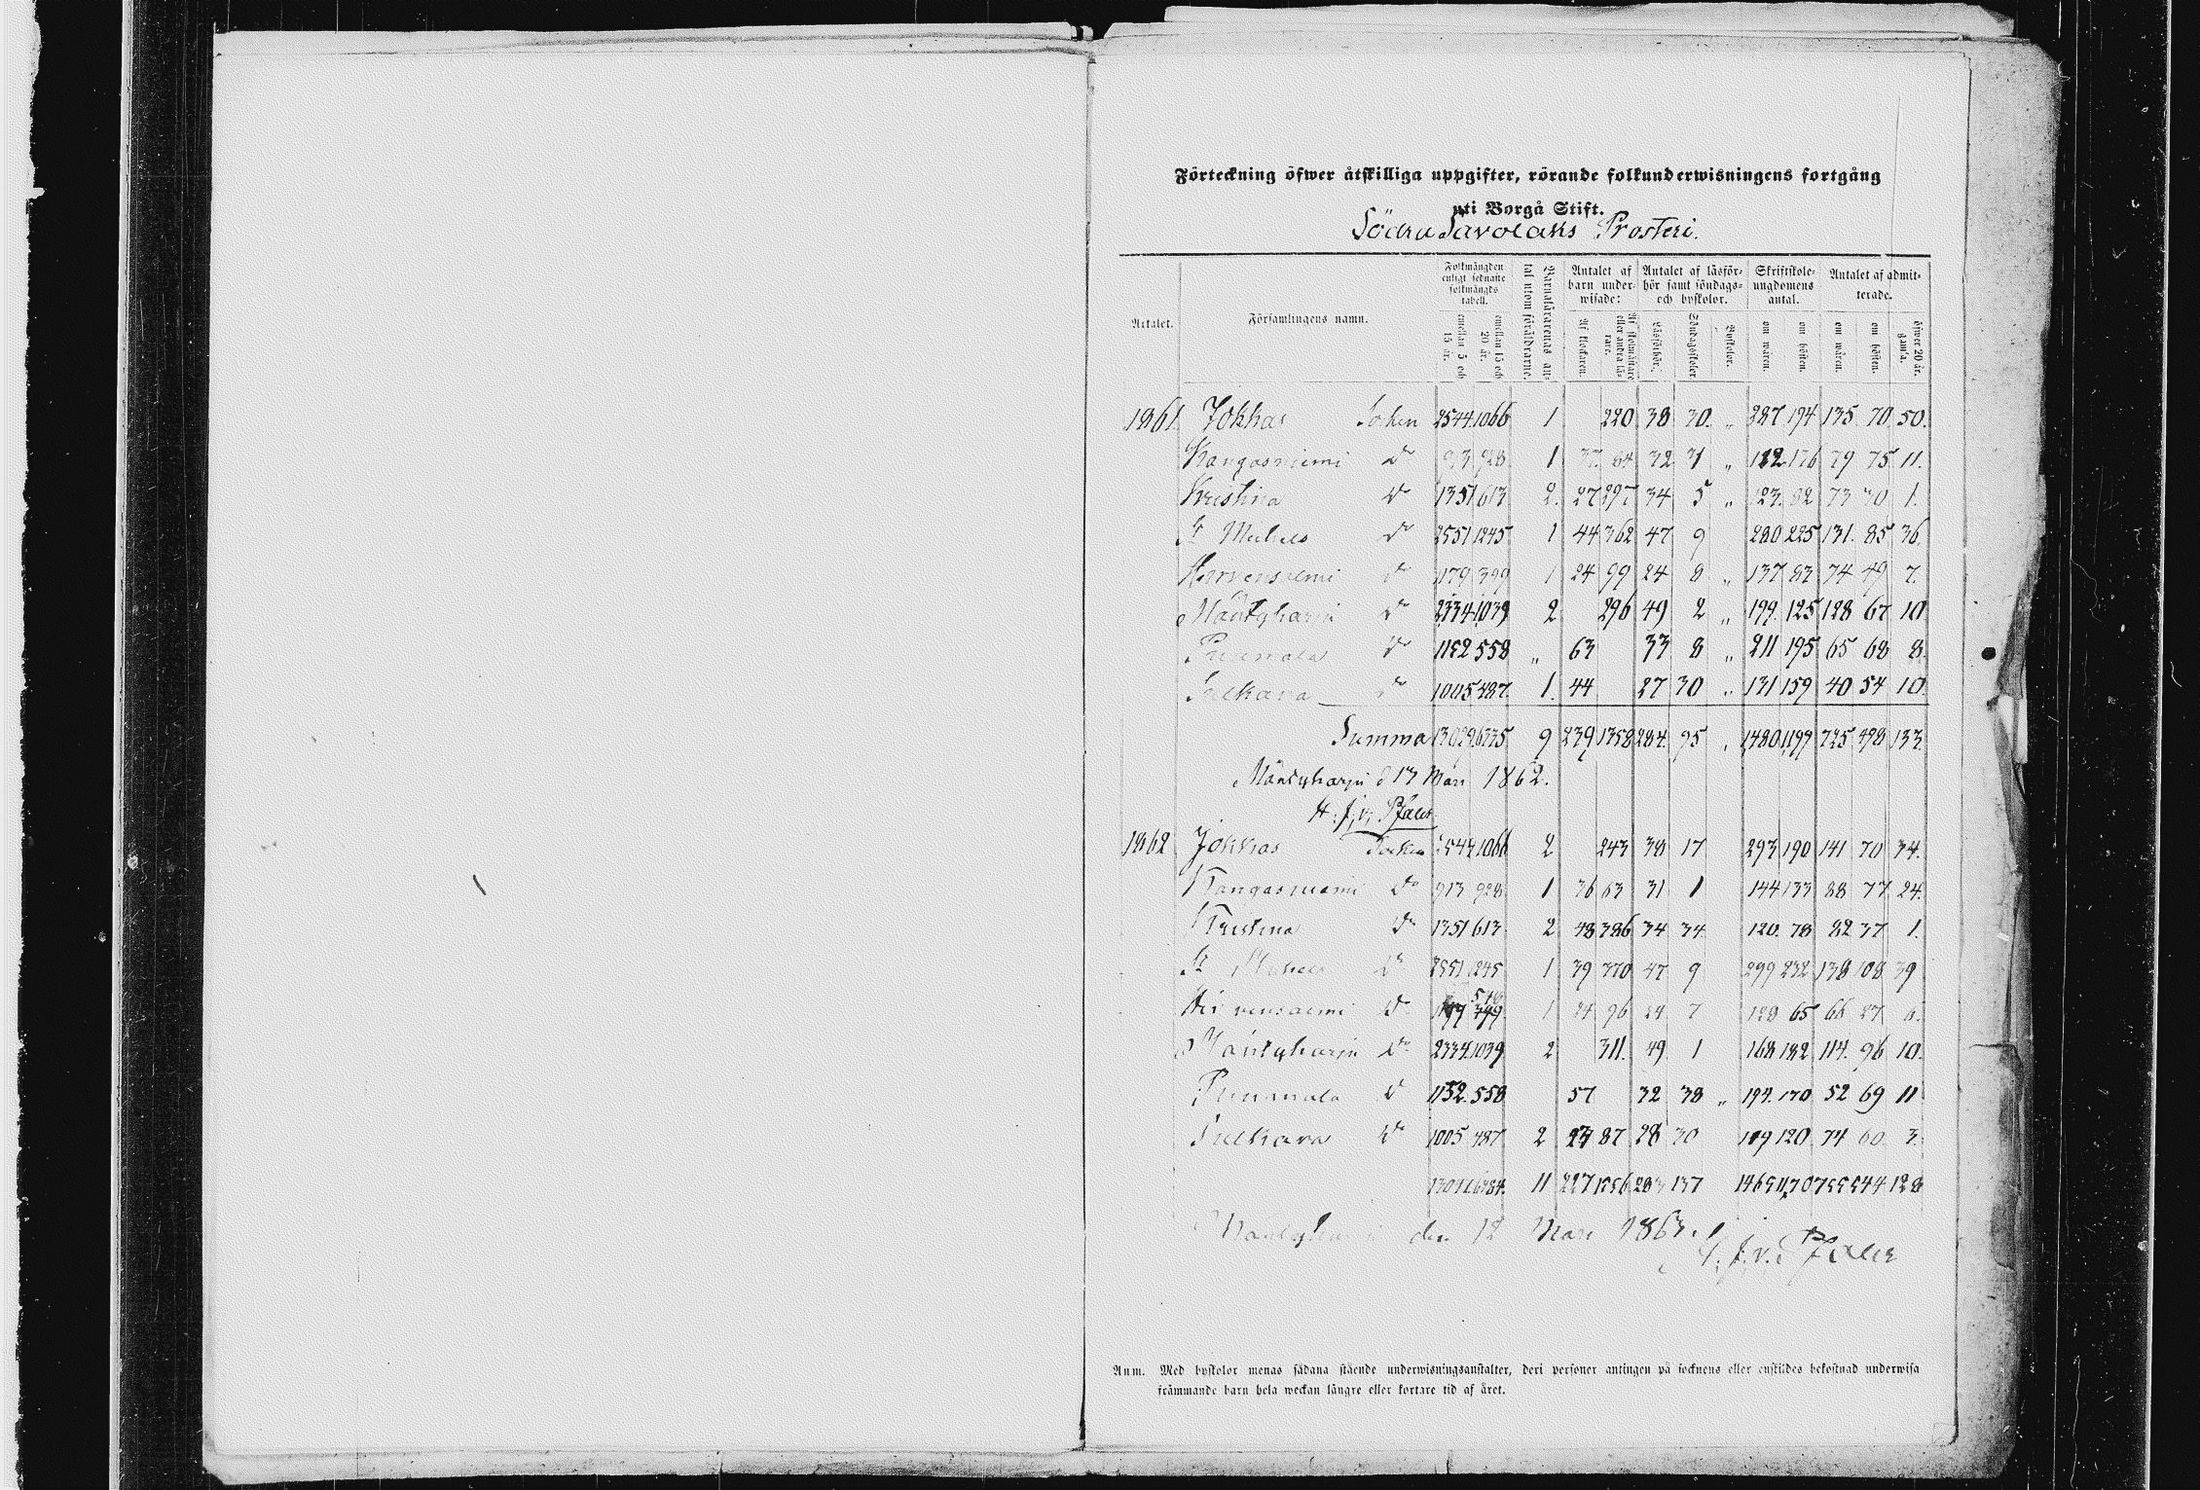 Förteckning öfwer åtskilliga uppgifter, rörande folkunderwisningens fortgång
uti Borgå Stift.
Södra Savolaks Prosteri.
Årtalet. Församlingens namn. Folkmängden enligt sednaste folkmängds tabell. emellan 5 och 15 år. emellan 15 och 20 år. Barnalärarenas antal utom föräldrarne. Antalet af barn underwisade: Af klockaren. Af skolmästare eller andra lärare. Antalet af läsförhör samt söndags- och byskolor. Läsförhör. Söndagsskolor. Byskolor. Skriftskole-ungdomens antal. om wåren. om hösten. Antalet af admitterade. om wåren. om hösten. öfwer 20 år. gamla.
1861. Jokkas Socken 2544 1066 1 220 38 30. „ 287 194 135 70 50.
Kangasniemi do 913 928 1 37 64 32 3 „ 112 136 79 75 11.
Kristina do 1351 613 2. 27 297 34 5 „ 123. 82 73 30 1.
St Michels do 2551 1245 1 44 362 47 9 280 225 131. 85 36.
Hirvensalmi do 1179 399 1 24 99 24 8 „ 137 83 74 49 7.
Mäntyharju do 2334 1039 2 296 49 2 „ 199. 125 128 67 10
Puumala do 1152 558 „ 63 33 8 „ 211 195 65 68 8.
Sulkava do 1005 487. 1. 44 27 30 „ 131 159 40 54 10.
Summa 13029 6335 9 239 1338 284. 95 „ 1480 1199 725 498 133.
Mäntyharju d 13 Mars 1862.
H. J. v. Pfaler
1862 Jokkas Socken 2544 1066 2 243 38 17 293 190 141 70 34.
Kangasniemi do 913 928 1 36 63 31 1 144 133 88 77 24.
Kristina do 1351 613 2 48 386 34 34 120. 78 82 37 1.
St Michels do 2551 1245 1 39 370 47 9 299 232 138 108 39
Hirvensalmi do 1 24 96 24 7 128 65 66 27 6.
Mäntyharju do 2334. 1039 2 311. 49. 1 168 182 114. 96 10.
Puumala do 1152. 558 57 32 38 „ 194. 170 52 69 11
Sulkava do 1005 487 2 23 87 28 30 119 120 74 60. 3.
11 227 1556 283 137 1465 1170 755 544 128
Mäntyharju den 12 Mars 1863.
H. J. v. Pfaler
Anm. Med byskolor menas sådana stående underwisningsanstalter, deri personer antingen på socknens eller enskildes bekostnad underwisa
främmande barn hela weckan längre eller kortare tid af året.